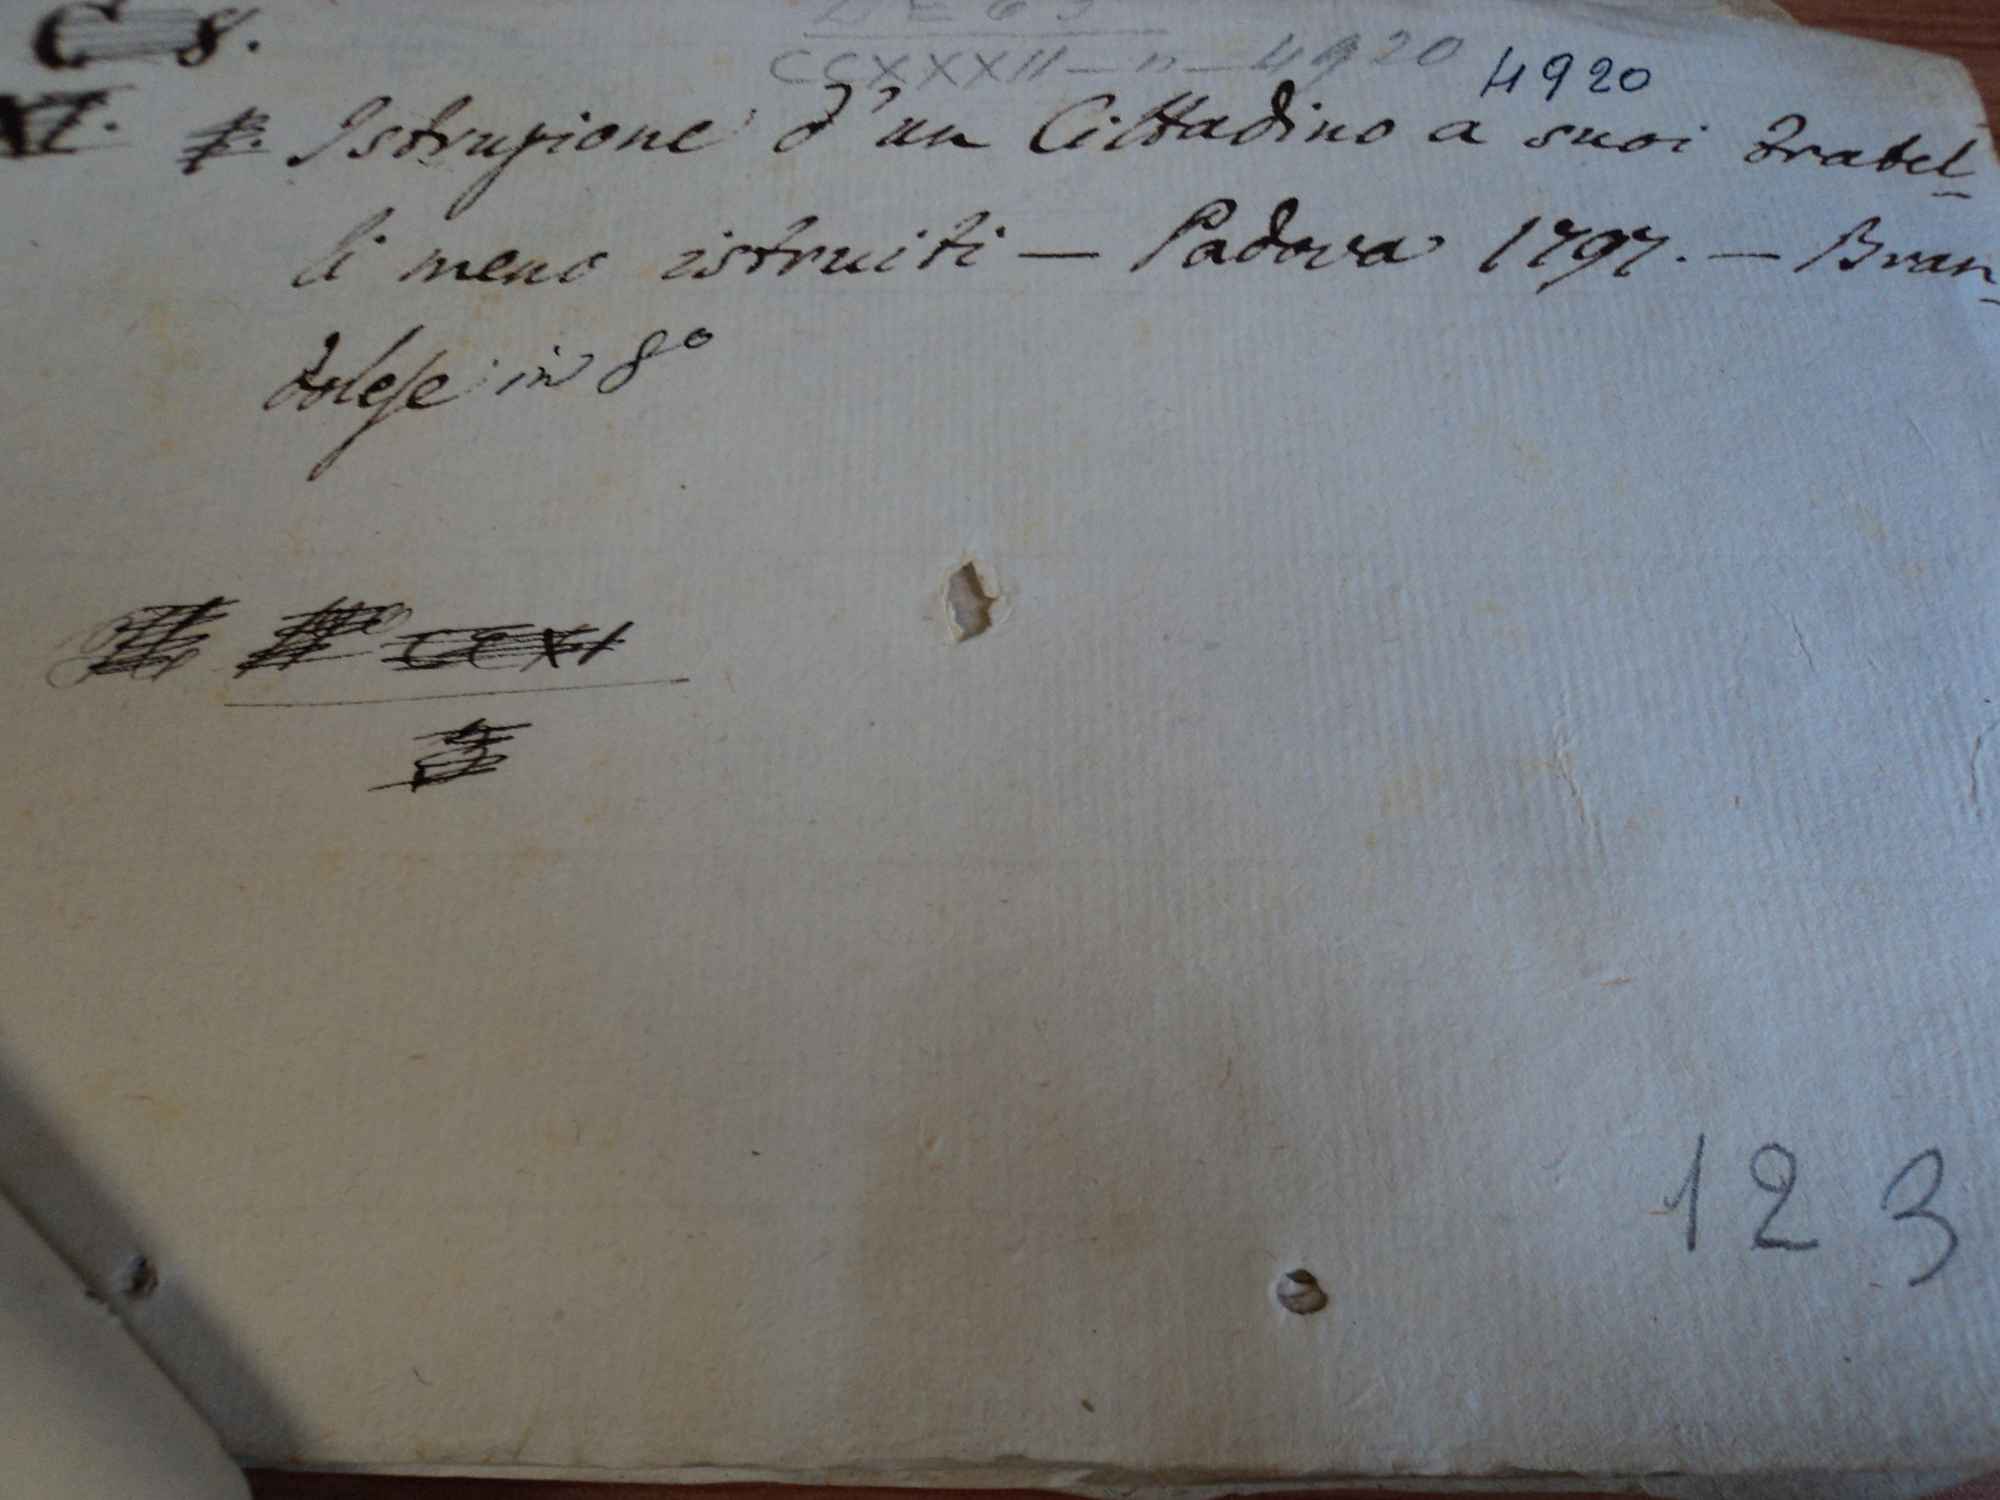 C 8.
CCXXXII - n - 4920
4920
Istruzione d'un Cittadino a suoi fratel-
li meno istruiti — Padova 1797. — Bran-
dolese in 8º
CCXI
3
123